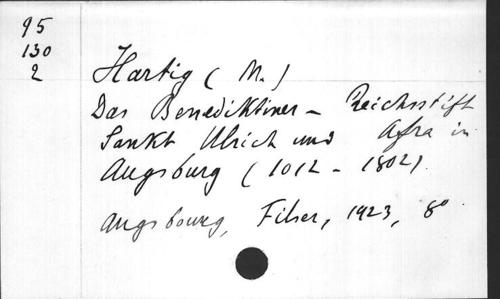 95
130
2
Hartig (M.)
Das Benediktiner - Reichsstift
Sankt Ulrich und Afra in
Augsburg (1012 - 1802).
Augsbourg, Filser, 1923, 8°